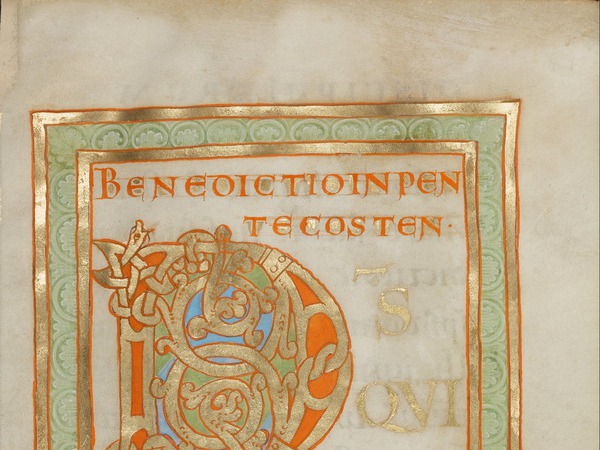 BENEDICTIO IN PEN
TECOSTEN·
D̄S
QVI